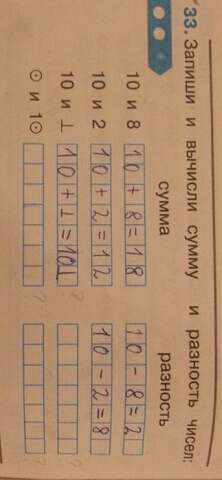 33. Запиши и вычисли сумму и разность чисел:
сумма разность
10 и 8 10+8=18 10-8=2
10 и 2 10+2=12 10-2=8
10 и ⊥ 10+⊥=10⊥ ?
⊙ и 1⊙ ? ?